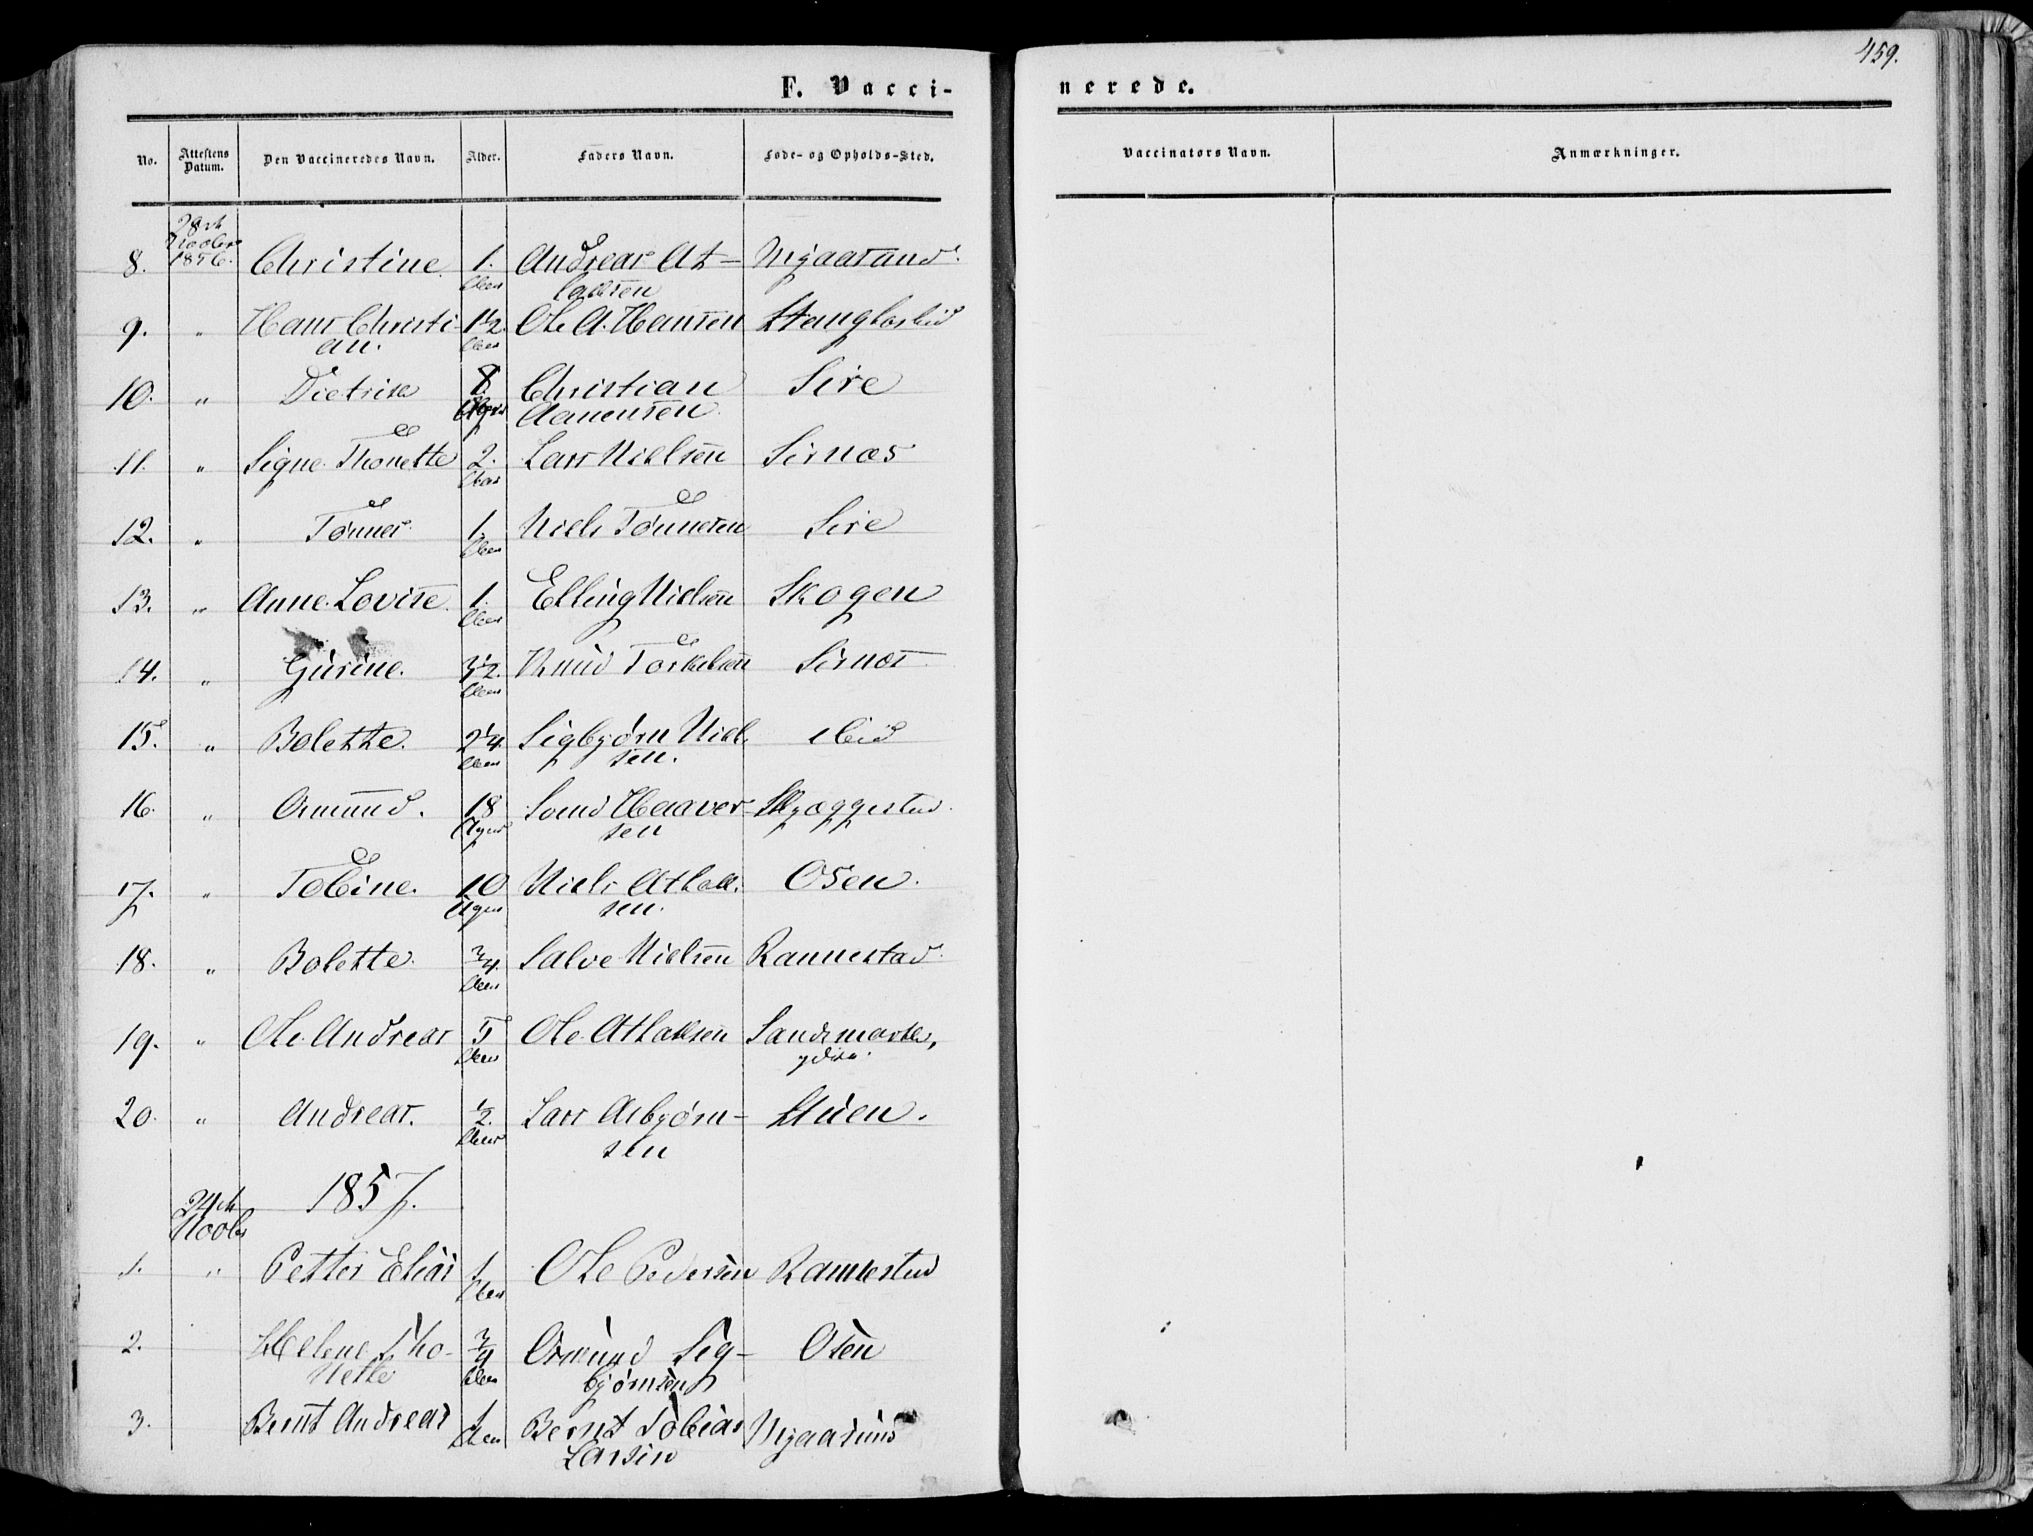 459.
F. Vacci-
nerede.
No. Attestens Datum. Den Vaccineredes Navn. Alder. Faders Navn. Føde- og Opholds-Sted. Vaccinators Navn. Anmærkninger.
28de
Novbr
8. 1856. Christine 1. Andreas At- Mgaarund.
Aar laksen
9. " Hans Christi- 1½. Ole A. Hansen
an. Aar
10. " Dietrik 8. Christian Sire
Uger Aanensen
11. " Signe Thonette 2. Lars Nielsen Sirnæs
Aar
12. " Tønnes 1. Niels Tønnesen Sire
Aar
13. " Anne Lovise 1. Elling Nielsen Skogen
Aar
14. " Gurine. 3½. Knud Torkelsen Sirnæs
Aar
15. " Bolette. 2¼. Sigbjørn Niel- Eid
Aar sen.
16. " Osmund. 18 Haaver- Skjæggestad.
Uger sen
17. " Tobine. 10 Niels Atlak- Osen.
Uger sen.
18. " Bolette ¾. Salve Nielsen Rannestad.
Aar
19. " Ole Andreas 5 Ole Atlaksen Sandsmark,
Aar
20. " Andreas. ½. Lars Asbjørn- Stuen.
Aar sen
1857.
24de
Novbr
1. " Petter Elias 1 Ole Pedersen Rannestad
Aar
2. Helene Tho- ¾ Osmund Sig- Osen
nette Aar bjørnsen
3. Bernt Andreas 1 Bernt Tobias Mgaarund
Aar Larsen